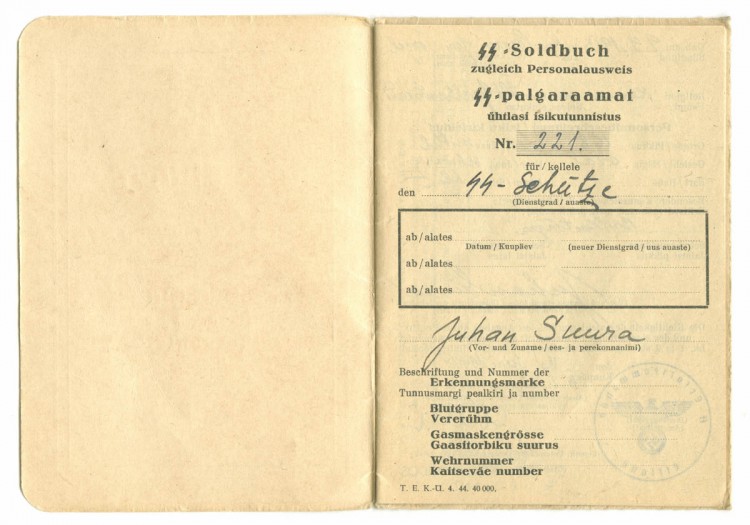 SS-Soldbuch
zugleich Personalausweis
SS-palgaraamat
ühtlasi isikutunnistus
Nr. 221.
für / kellele
den SS-Schütze
(Dienstgrad / auaste)
ab / alates
Datum / Kuupäev (neuer Dienstgrad / uus auaste)
ab / alates
ab / alates
Juhan Suura
(Vor- und Zuname / ees- ja perekonnanimi)
Beschriftung und Nummer der
Erkennungsmarke
Tunnusmargi pealkiri ja number
Blutgruppe
Vererühm
Gasmaskengrösse
Gaasitorbiku suurus
Wehrnummer
Kaitseväe number
T. E. K.-Ü. 4. 44. 40 000.